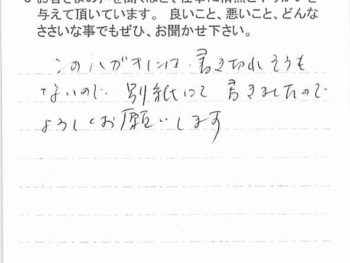 与えて頂いています。良いこと、悪いこと、どんな
ささいな事でもぜひ、お聞かせ下さい。
このハガキには 書き切れそうも
ないので 別紙にて 書きましたので
よろしくお願いします